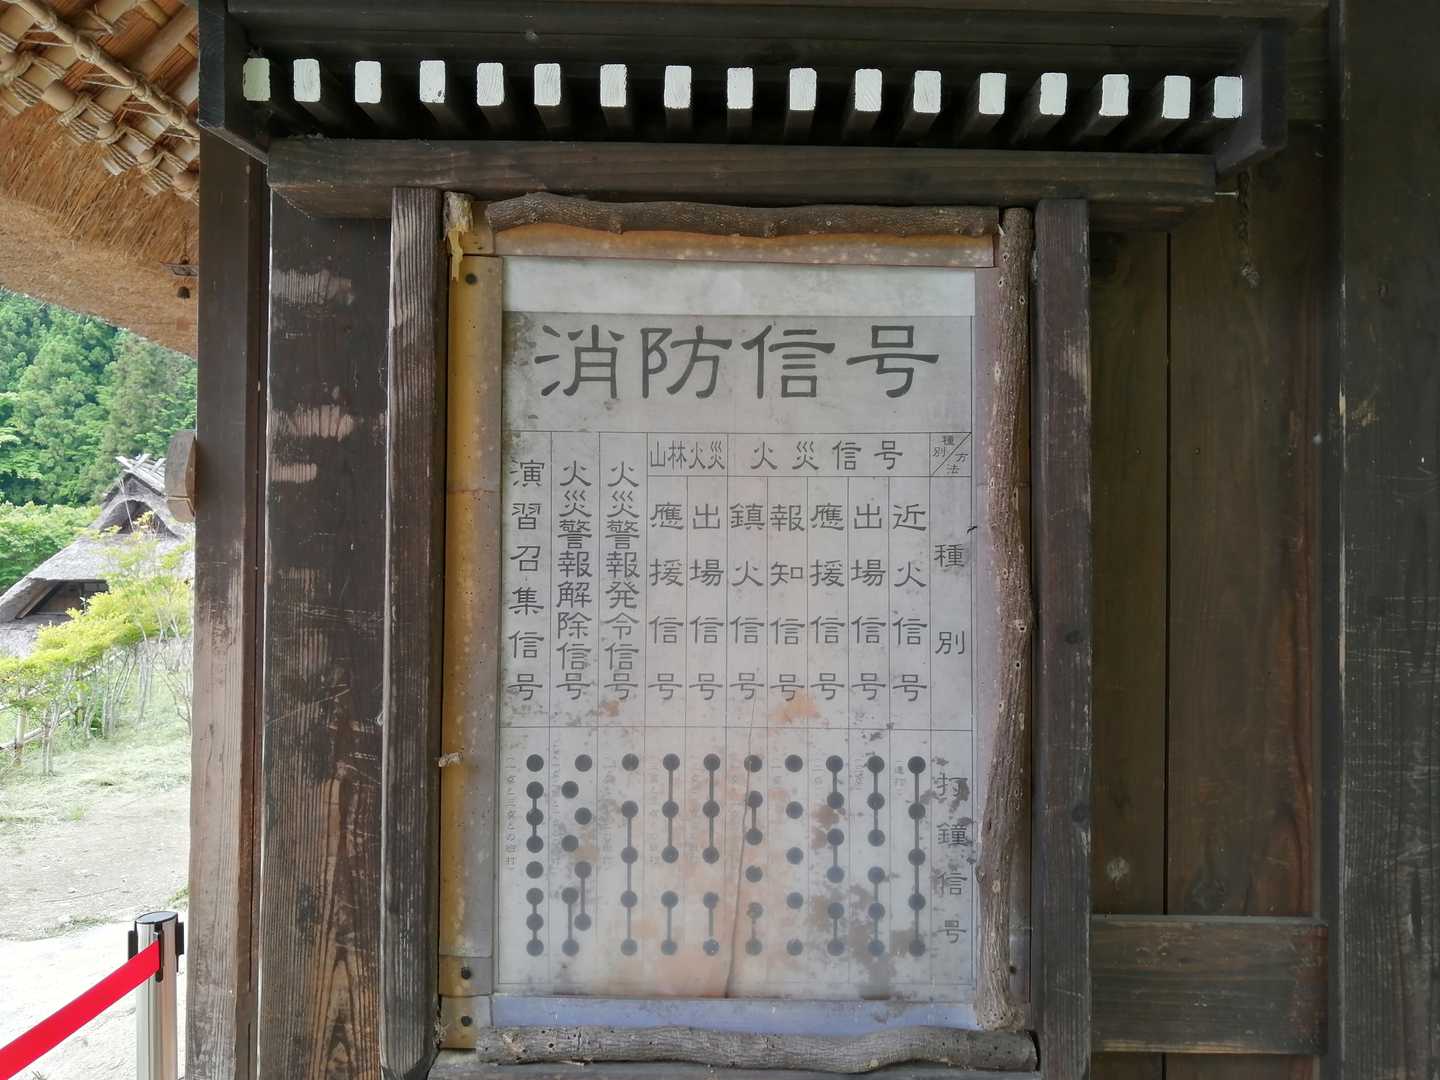 消防信号
種別
方法
火災信号
山林火災
種別
近火信号
出場信号
應援信号
報知信号
鎮火信号
出場信号
應援信号
火災警報発令信号
火災警報解除信号
演習召集信号
打鐘信号
(連打)
(一点と三点との班打)